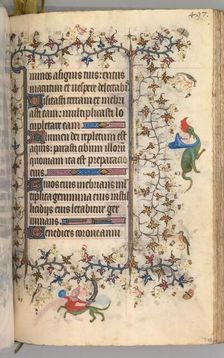 497.
minos asignis tuis: exitus
matutini et uespere delectabis
Uisitasti terram et inebri
asti eam: multiplicasti lo
cupletare eam
Flumen dei repletum est
aquis: parasti cibum illorū
quoniam ita est preparacio
eius
Riuos eius inebrians mul
tiplica genimina eius: in stil
licidijs eius letabitur ger
minans
Benedices corone anni